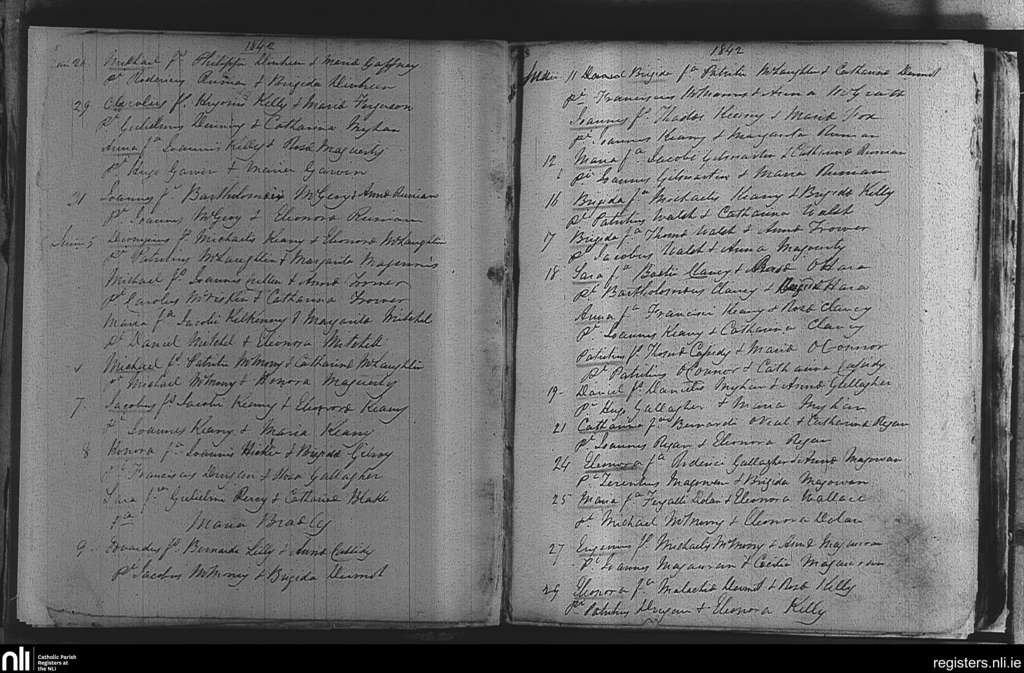 1842
28 Michael fs Philippi & Maria Gaffney
pr & Brigida
29 Carolus fs Kelly & Maria Ferguson
pr Gulielmus & Catharina Myhan
Anna fa Joannis Kelly & Rosa Maguerty
pr Hugo & Garvin
31 Joannes fs Bartholomaei McGroy & Anna Ruman
pr Joannes McGroy & Eleonora Ruman
5 Dionysius fs Michaelis Keany & Eleonora McLaughlin
pr Patritius McLaughlin & Margarita
Michael fs Joannis Cullen & Anna
pr Carolus & Catharina
Maria fa Jacobi Kilkenny & Margarita Mitchel
pr Daniel Mitchel & Eleonora Mitchell
Michael fs Patritii McMorry & Catharina McLaughlin
pr Michael McMorry & Honora Maguerty
7 Jacobus fs Jacobi Keany & Eleonora Keany
pr Joannes Keany & Maria Keany
8 Honora fa Joannis & Brigida Gilroy
pr Franciscus & Gallagher
Sara fa Gulielmi Percy & Catharina Blake
pa Maria Bradly
9 Edvardus fs Bernardi Lilly & Anna Cassidy
pr Jacobus McMorry & Brigida Dermot
1842
11 Brigida fa Patritii McLaughlin & Catharina Dermot
pr Franciscus & Anna McGrath
Joannes fs Keany & Maria Fox
pr Joannes Keany & Margarita Ruman
12 Maria fa Jacobi Gilmartin & Catharina Ruman
pr Joannes Gilmartin & Maria Ruman
16 Brigida fa Michaelis Keany & Brigida Kelly
pr Patritius Walsh & Catharina Walsh
17 Brigida fa Thoma Walsh & Anna
pr Jacobus Walsh & Anna Maguerty
18 Sara fa Clancy & OHara
pr Bartholomeus Clancy & Brigida Hara
Anna fa Francisci Keany & Rosa Clancy
pr Joannes Keany & Catharina Clancy
Patritius fs Thoma Cassidy & Maria OConnor
pr Patritius OConnor & Catharina Cassidy
19 Daniel fs Danielis Myhan & Anna Gallagher
pr Hugo Gallagher & Maria Myhan
21 Catharina fa Bernardi & Catharina Regan
pr Joannes Regan & Eleonora Regan
24 Eleonora fa Gallagher & Anna Magowan
pr Terentius Magowan & Brigida Magowan
25 Maria fa Dolan & Eleonora Wallace
pr Michael McMorry & Eleonora Dolan
27 Eugenius fs Michaelis McMorry & Anna Magauran
pr Joannes Magauran & Magauran
29 Eleonora fa Malachi Dermot & Rosa Kelly
pr Patritius & Eleonora Kelly
nli
Catholic Parish
Registers at
the NLI
registers.nli.ie